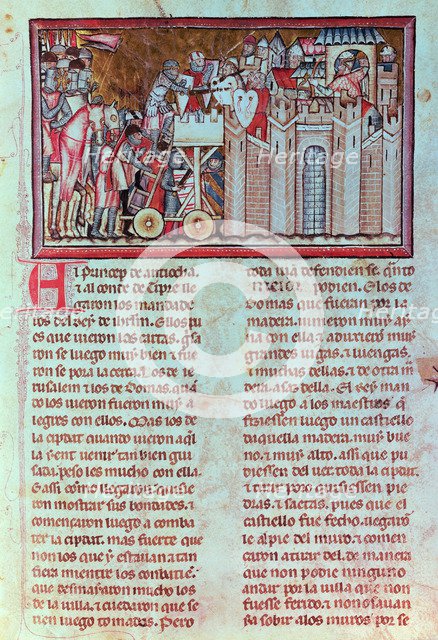 Al princep de antiocha,
⁊ al conte de Cipre lle
garon los mandade
ros del Rey de iherlin. Ellos pu
es que uieron las cartas. guisa
ron se luego muy bien ⁊ fuerō
se pora la cerca. Los de ie
rusalem ⁊ los de Domas, quā
do los uieron fueron muy a
legres con ellos. Mas los de
la cipdat quando uieron aqui
lla yent uenir tan bien gui
sada. peso les mucho con ella.
Assi cōmo llegaron quisie
ron mostrar sus bondades. ⁊
començaron luego a comba
ter la cipdat. mas fuerte que
non los que y estauan ⁊ tan
fiera mientre los conbatien.
que desmayaron mucho los
de la villa. ⁊ cuedaron que se
rien luego tomados. Pero
toda uia defendien se quāto
meior podien. Ellos de
Domas que fueran por la
madera. uinieron muy ayna
con ella ⁊ aduxieron muy
grandes uigas. ⁊ luengas.
⁊ muchas dellas. ⁊ de otra ma
dera assaz della. El Rey man
do luego a los maestros que
fiziessen luego un castiello
daquella madera. muy bue
no. ⁊ muy alto. assi que pu
diessen del uer toda la cipdat.
⁊ tirar por o quisiessen pie
dras. ⁊ saetas. pues que el
castiello fue fecho. llegarō
le al pie del muro. ⁊ comen
çaron a tirar del. de manera
que non podie ninguno
andar por la uilla que non
fuesse ferido. ⁊ non osauan
sa sobir a los muros por se
heritage
Heritage
Heritage
Heritage
Heritage